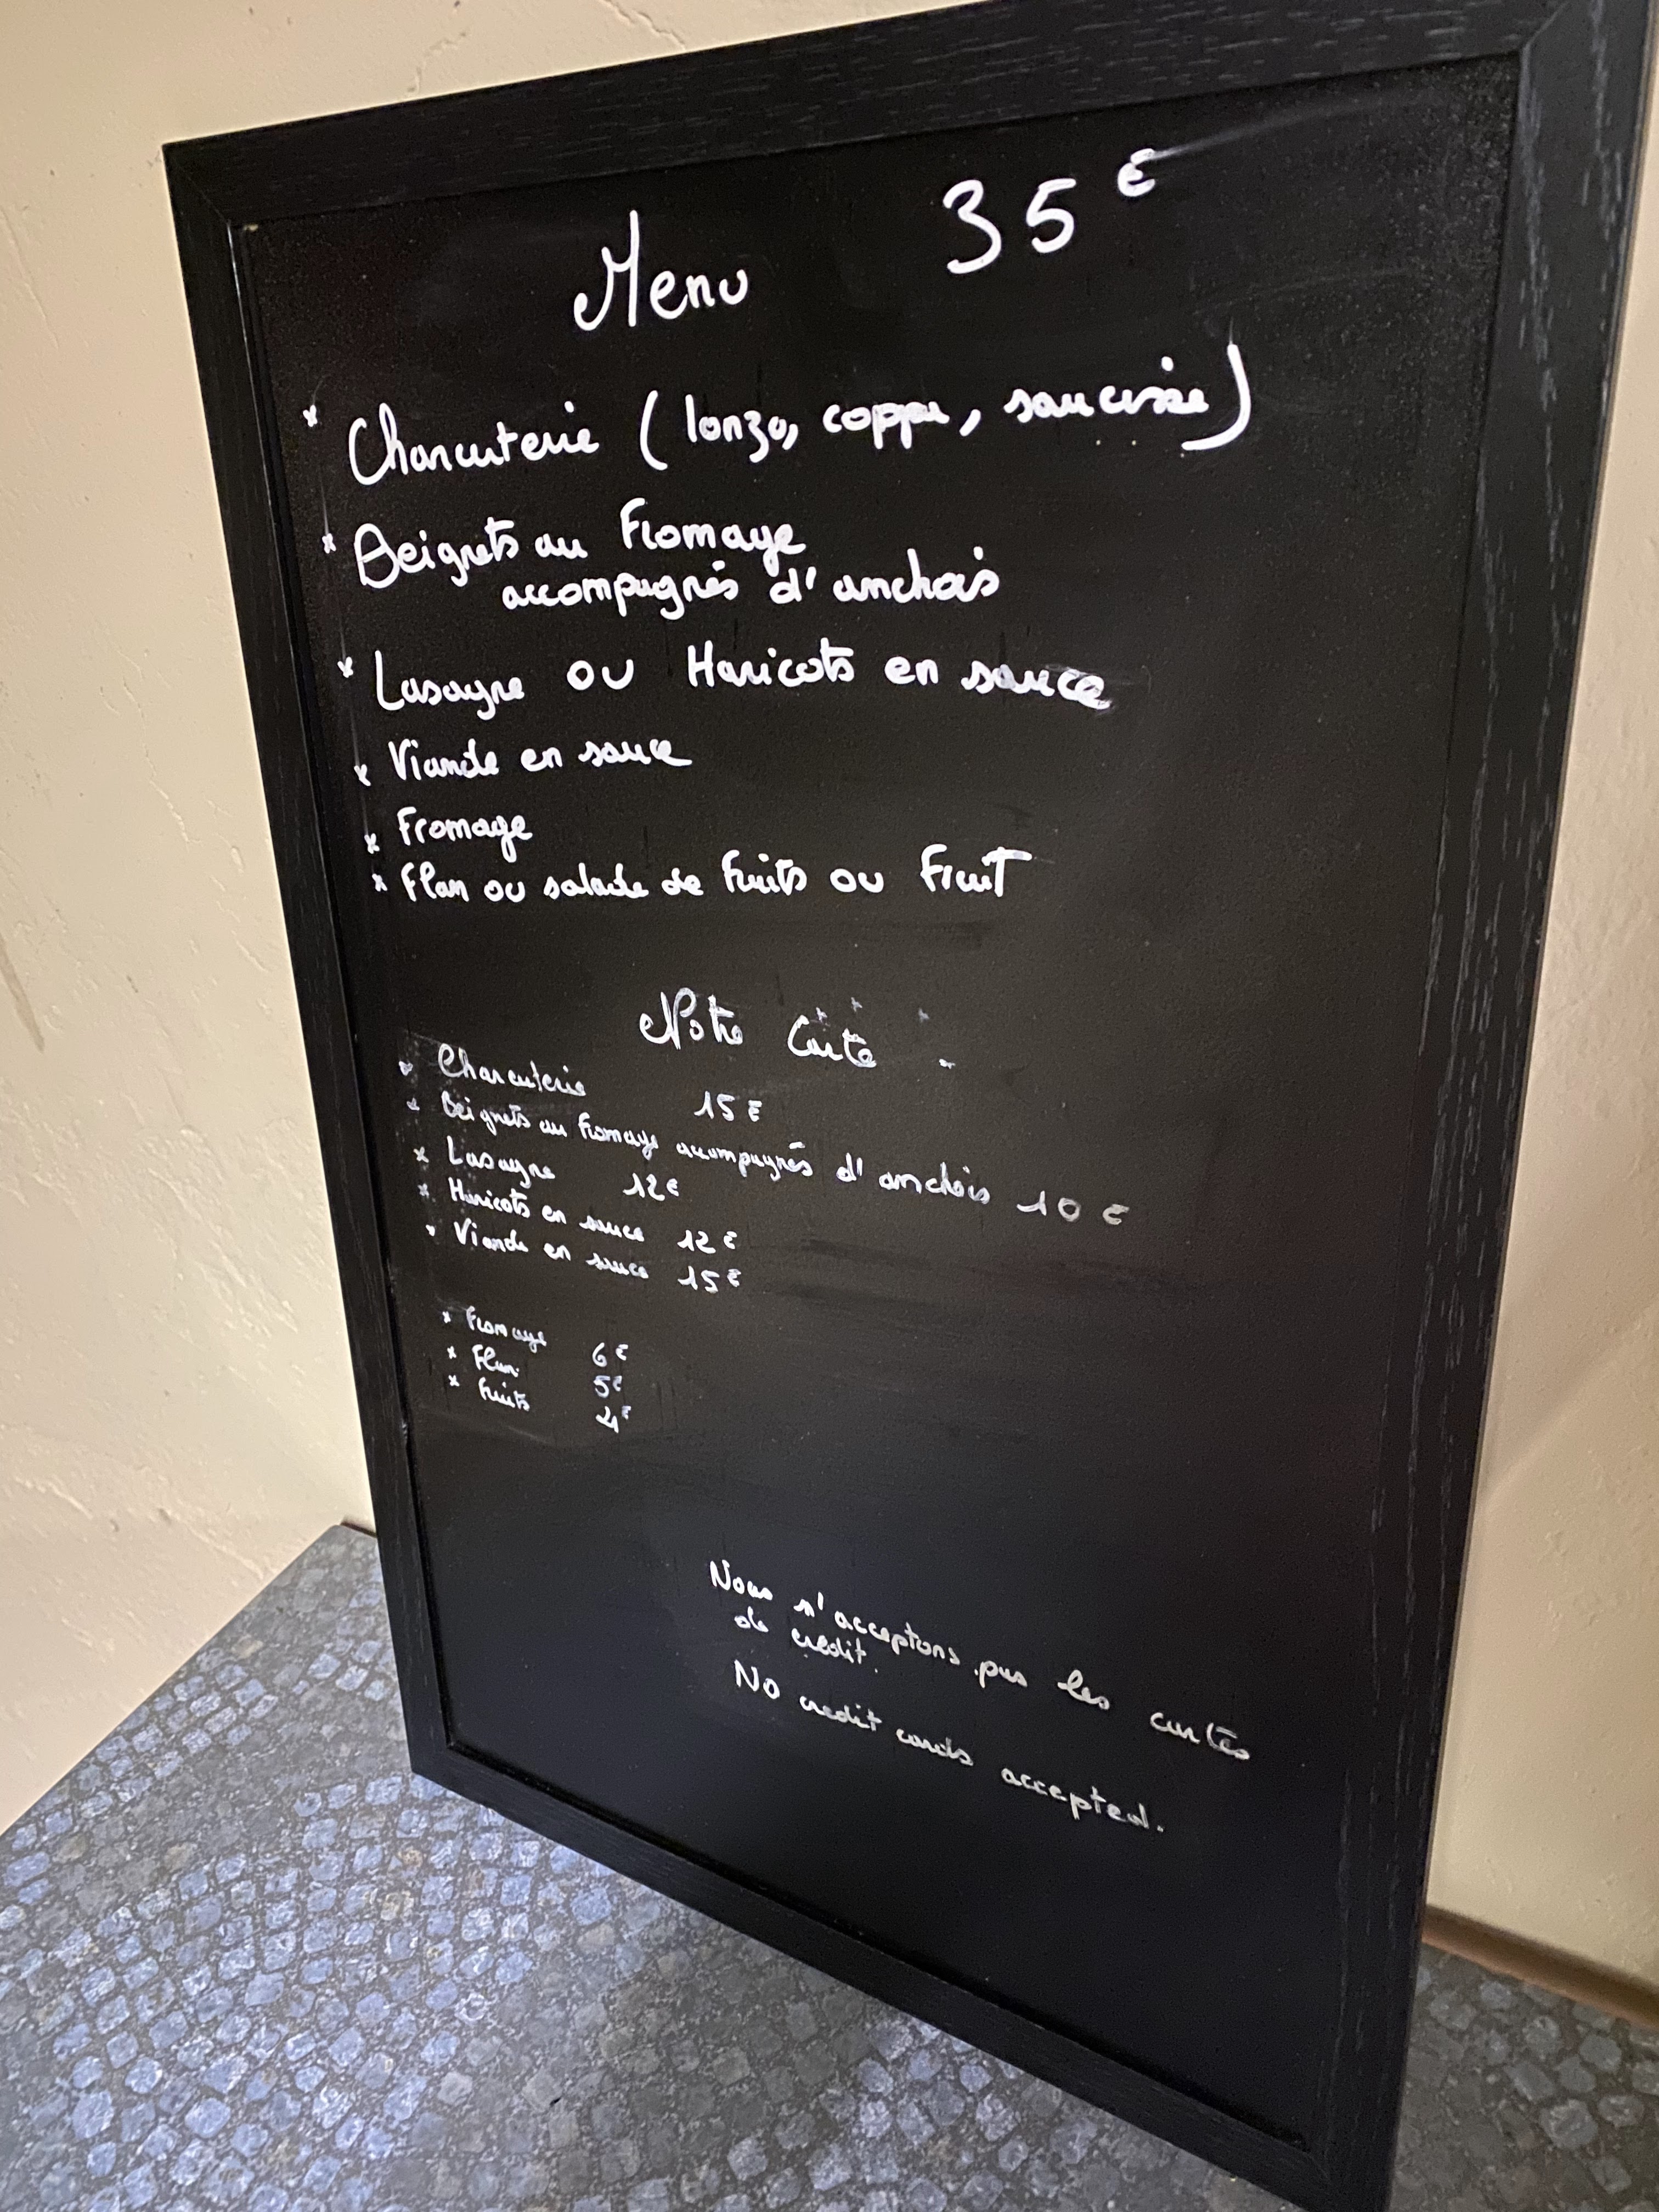 Menu 35€
* Charcuterie (lonzo, coppa, saucisse)
* Beignets au Fromage
accompagnés d'anchois
* Lasagne ou Haricots en sauce
* Viande en sauce
* Fromage
* Flan ou salade de fruits ou Fruit
Notre Carte
* Charcuterie 15€
* Beignets au fromage accompagnés d'anchois 10€
* Lasagne 12€
* Haricots en sauce 12€
* Viande en sauce 15€
* Fromage 6€
* Flan 5€
* Fruits 4€
Nous n'acceptons pas les cartes
de crédit.
No credit cards accepted.